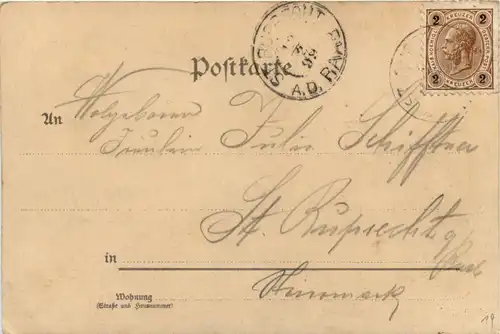 2 KREUZER 2
2 2
Postkarte
A.D. RA
An Wolgeboren
Fräulein Julie Schiffner
St. Ruprecht a/
Raab
in
Steiermark
Wohnung
(Straße und Hausnummer)
19